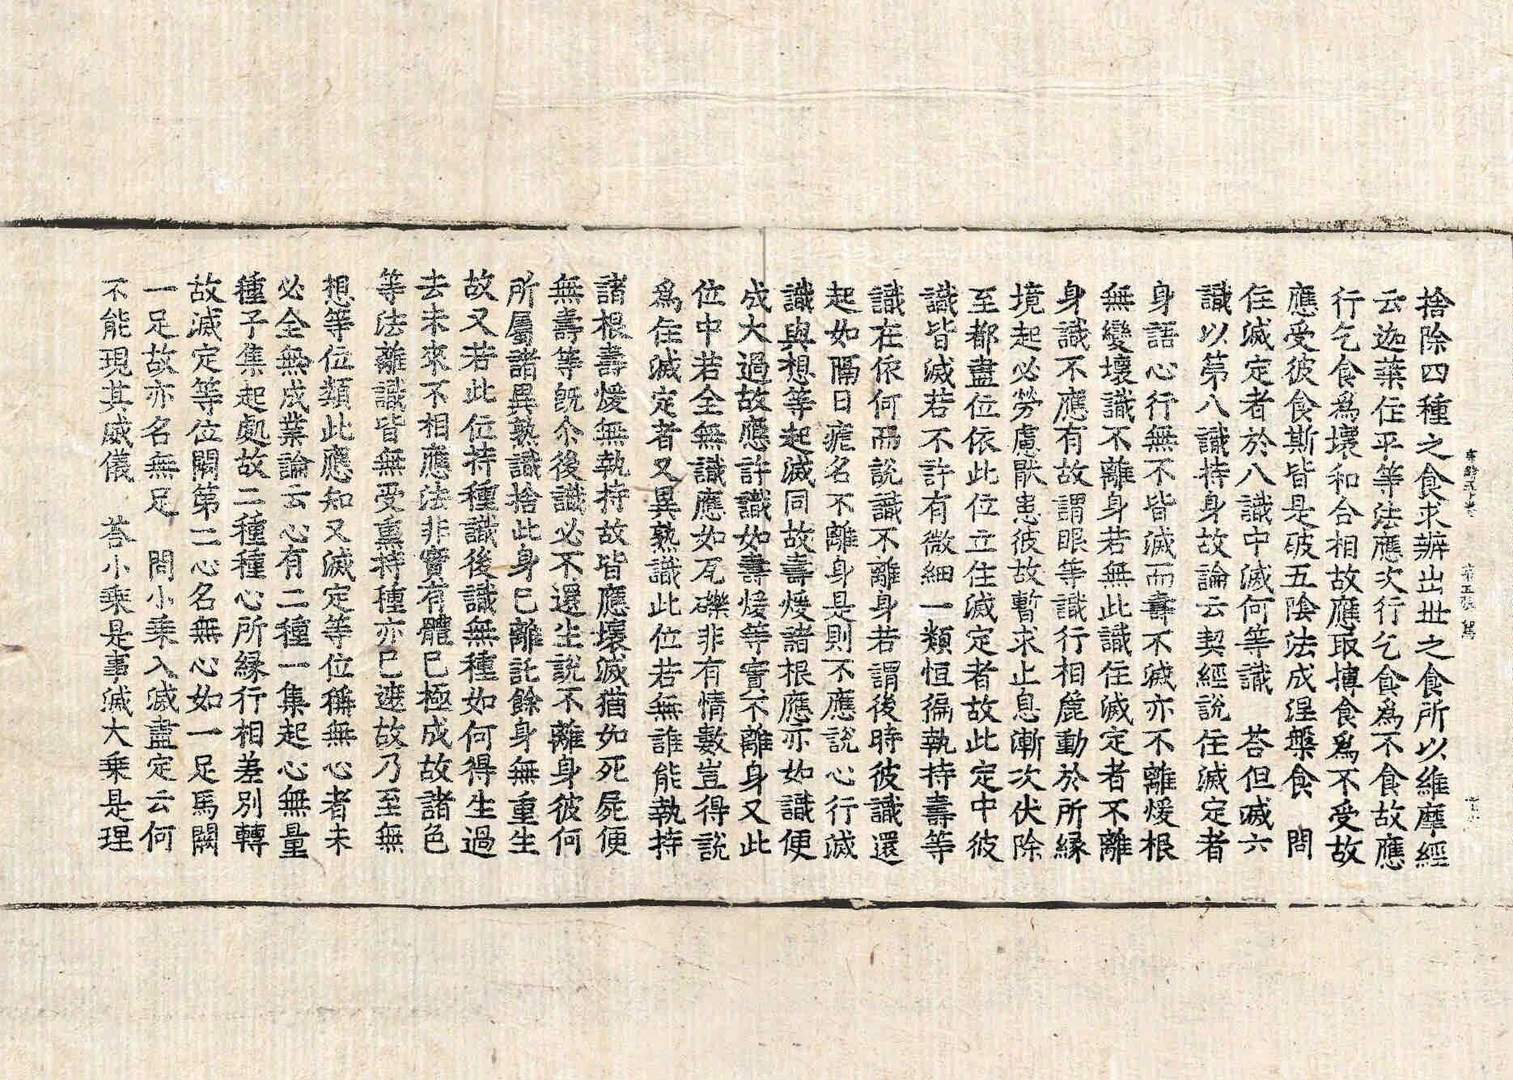 捨除四種之食求辦出丗之食所以維摩經
云迦葉住平等法應次行乞食爲不食故應
行乞食爲壞和合相故應取摶食爲不受故
應受彼食斯皆是破五陰法成涅槃食　問
住滅定者於八識中滅何等識　荅但滅六
識以第八識持身故論云契經說住滅定者
身語心行無不皆滅而壽不滅亦不離煖根
無變壞識不離身若無此識住滅定者不離
身識不應有故謂眼等識行相麁動於所緣
境起必勞慮猒患彼故暫求止息漸次伏除
至都盡位依此位立住滅定者故此定中彼
識皆滅若不許有微細一類恒徧執持壽等
識在依何而說識不離身若謂後時彼識還
起如隔日瘧名不離身是則不應說心行滅
識與想等起滅同故壽煖諸根應亦如識便
成大過故應許識如壽煖等實不離身又此
位中若全無識應如瓦礫非有情數豈得說
爲住滅定者又異熟識此位若無誰能執持
諸根壽煖無執持故皆應壞滅猶如死屍便
無壽等旣尒後識必不還生說不離身彼何
所屬諸異熟識捨此身已離託餘身無重生
故又若此位持種識後識無種如何得生過
去未來不相應法非實有體已極成故諸色
等法離識皆無受熏持種亦已遮故乃至無
想等位類此應知又滅定等位稱無心者未
必全無成業論云心有二種一集起心無量
種子集起處故二種種心所緣行相差別轉
故滅定等位闕第二心名無心如一足馬闕
一足故亦名無足　問小乘入滅盡定云何
不能現其威儀　荅小乘是事滅大乘是理